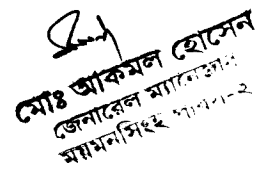 মোঃ আকমল হোসেন
জেনারেল ম্যানেজার
ময়মনসিংহ পবিস-২